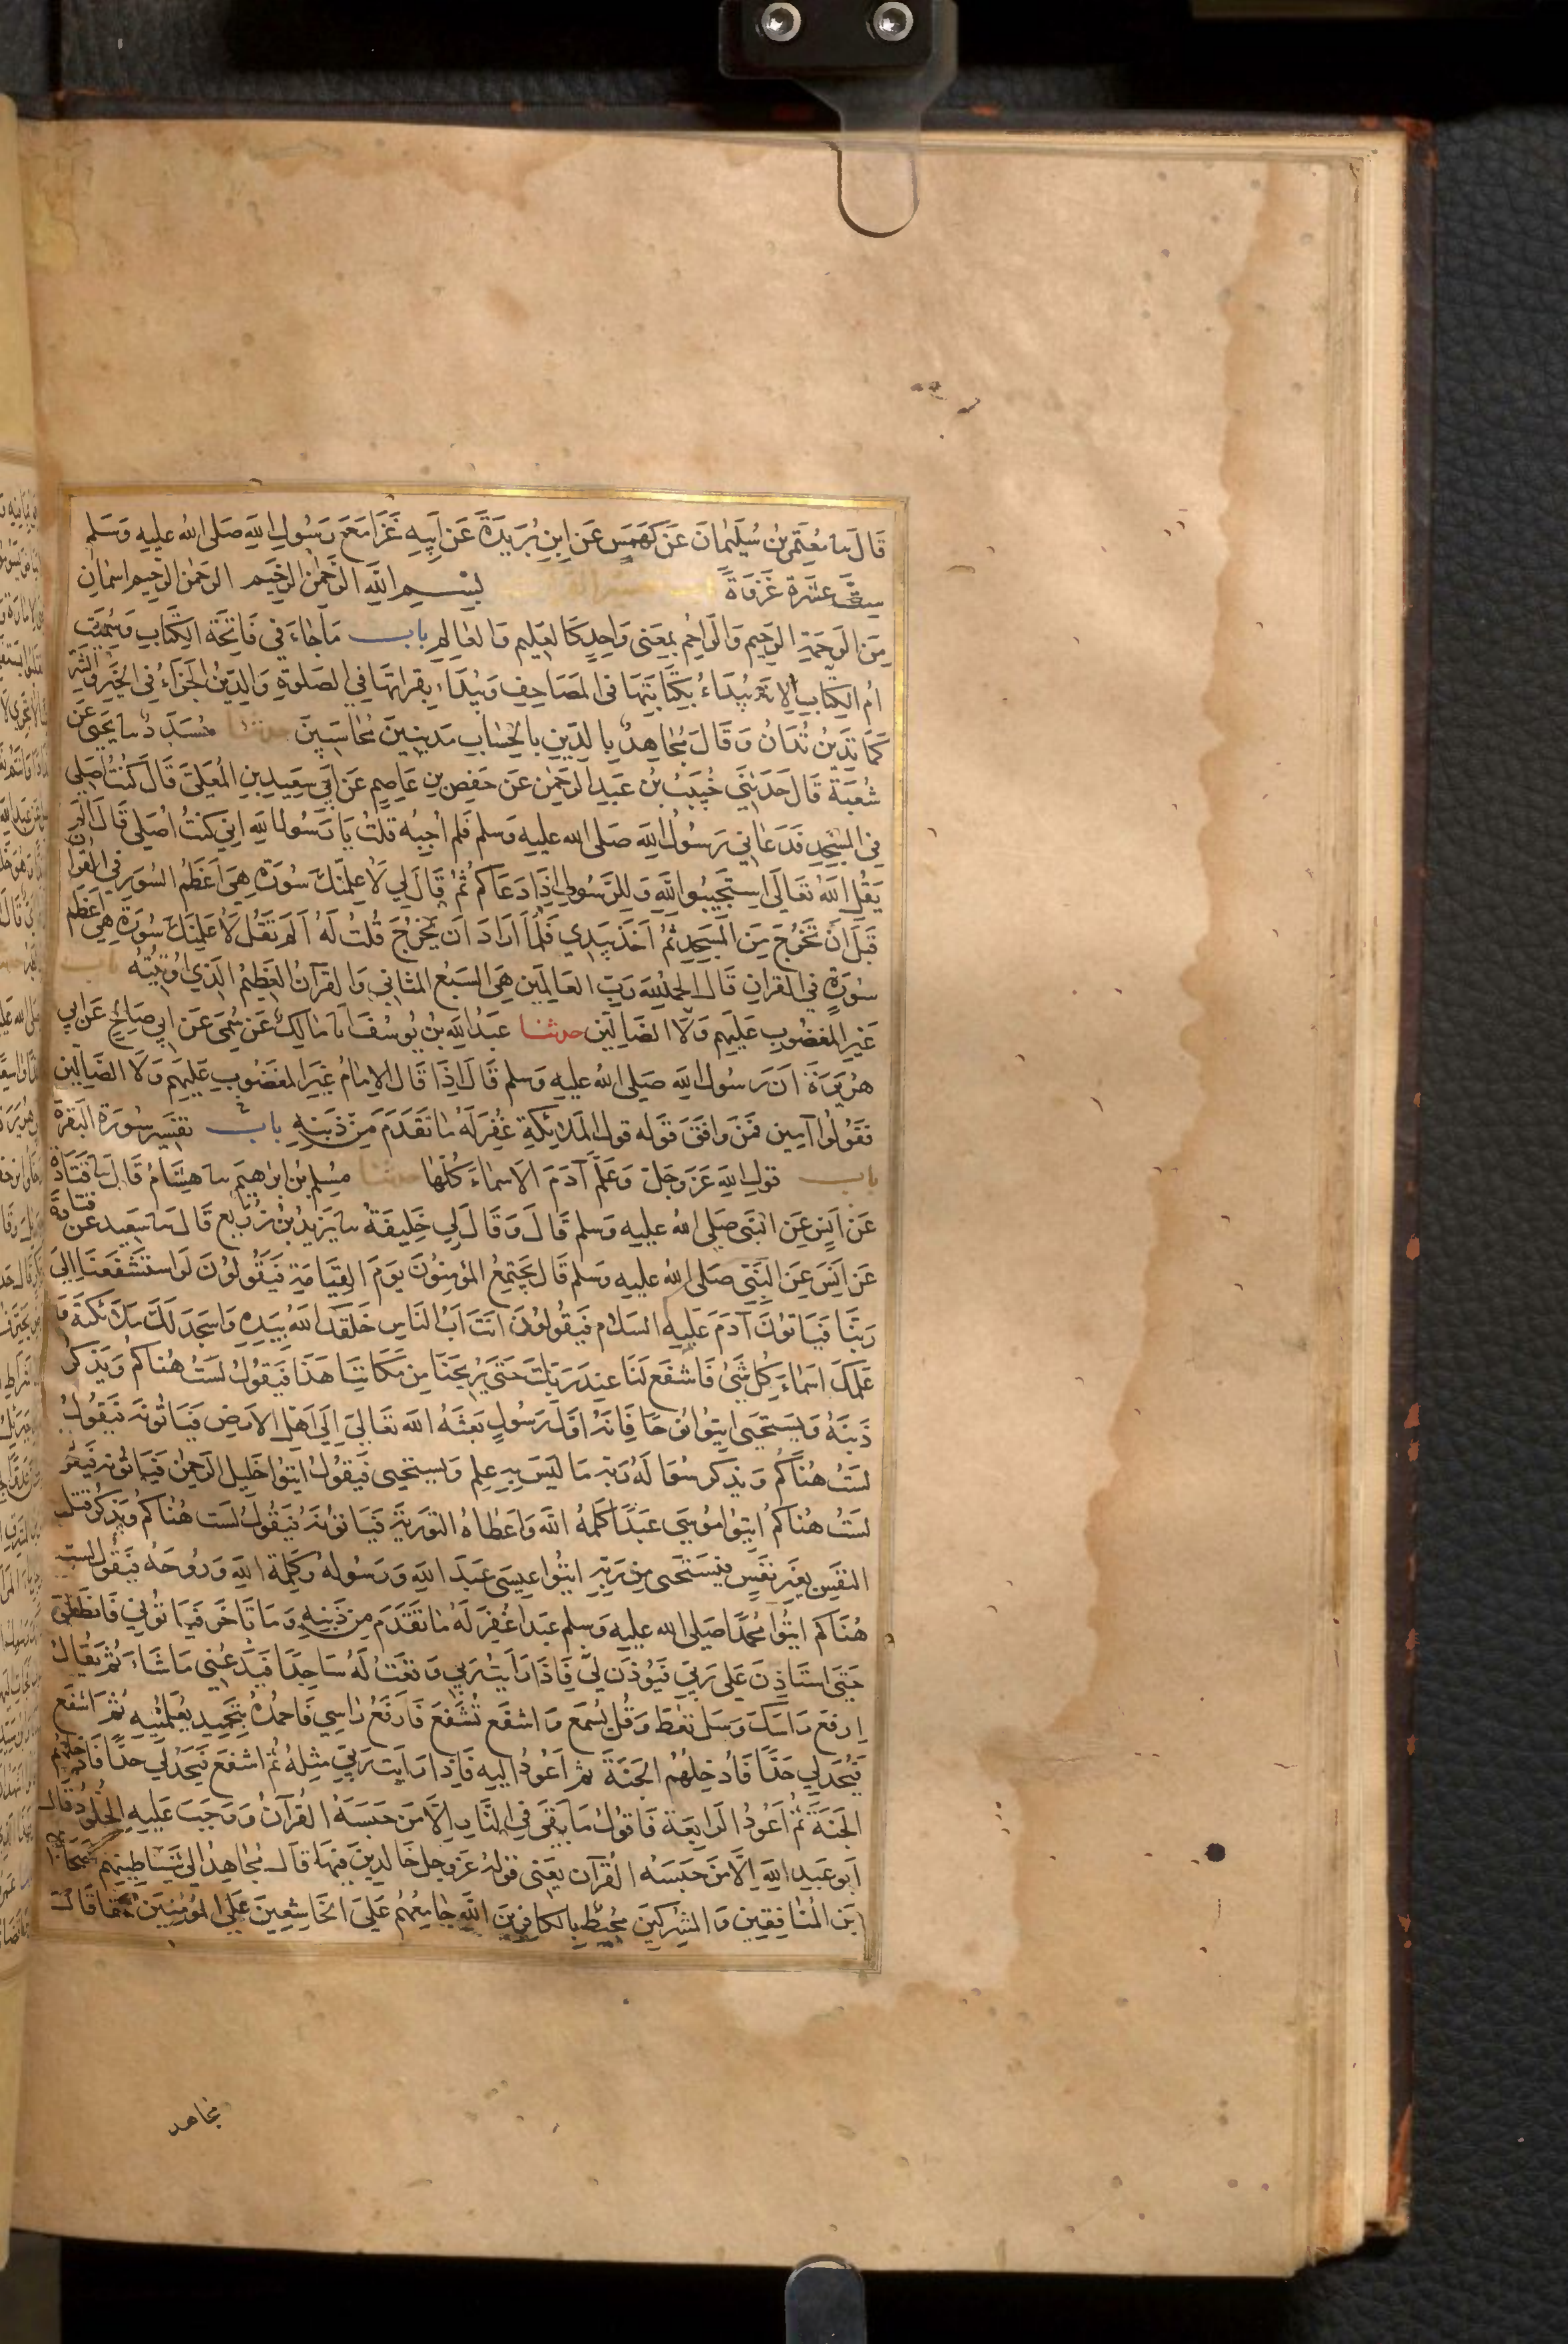 قَالَ ثنا مُعْتَمِرُ بْنُ سُلَيْمَانَ عَنْ كَهْمَسٍ عَنِ ابْنِ بُرَيْدَةَ عَنْ اَبِيهِ غَزَا مَعَ رَسُولِ اللهِ صَلى الله عليه وَسَلم
سِتَّ عَشَرَةَ غَزْوَةً بِسْمِ اللهِ الرَّحْمٰنِ الرَّحِيمِ الرحمٰن الرحِيم اسمَانِ
مِنَ الرَحمَةِ الرَحِيم وَالراحِمُ بمعنى وَاحِدٍ كَالعَلِيم وَالعَالِمِ باب مَا جَاءَ فِي فَاتِحَةِ الكِتَابِ وَسُمِّيَت
ام الكِتَابِ لانهُ يُبْدَاءُ بِكِتَابَتِهَا في المَصَاحِفِ وَيُبْدَاءُ بِقِرَاتِهَا فِي الصَلوةِ وَالدِينُ الجَزَاءُ فِي الخَيْرِ وَالشَرِّ
كَمَا تَدِينُ تُدَانُ وَقَالَ مُجَاهِدٌ بِالدِينِ بِالحِسَابِ مَدِينِينَ مُحَاسَبِينَ حدثنا مُسَدَدٌ ثنا يَحْيَى عَن
شُعْبَةَ قَالَ حَدَثَنِي خُبَيْبُ بْنُ عَبدِ الرَحمنِ عَن حَفصِ بنِ عَاصِمٍ عَن اَبِي سَعِيدِ بنِ المُعَلَى قَالَ كُنْتُ اُصَلِي
فِي المَسْجِدِ فَدَعَانِي رَسُولُ اللهِ صَلى الله عليه وَسلم فَلم اُجِبْهُ فَقُلتُ يَا رَسُولَ اللهِ اِنِي كُنتُ اُصَلِي قَالَ اَلَمْ
يَقُلِ اللهُ تعَالَى اِستَجِيبُوا للهِ وَلِلرَّسُولِ اِذَا دَعَاكُم ثُمَ قَالَ لِي لَاُعَلِّمَنَّكَ سُورَةً هِيَ اَعظَمُ السُوَرِ فِي القُرآنِ
قَبلَ اَنْ تَخرُجَ مِنَ المَسجِدِ ثُمَّ اَخَذَ بِيَدِي فَلَمَّا اَرَادَ اَن يَخْرُجَ قُلتُ لَهُ اَلَم تَقُل لَاُعَلِّمَنَّكَ سُورَةً هِيَ اَعظَمُ
سُورَةٍ فِي القُرانِ قَالَ الحمدُ للهِ رَبِّ العَالَمِين هِيَ السَبعُ المَثَانِي وَالقُرآنُ العَظِيْمُ الَذِي اُوتِيتُهُ باب
غَيْرِ المَغضُوبِ عَلَيهِم وَلَا الضَالِين حدثنا عَبدُ اللهِ بنُ يُوسُفَ انا مَالِكٌ عَنْ سُمَيٍّ عَن اَبِي صَالِحٍ عَن اَبِي
هُرَيرَةَ اَنَ رَسُولَ اللهِ صَلى الله عليه وَسلم قَالَ اِذَا قَالَ الاِمَامُ غَيرِ المَغضُوبِ عَلَيهِم وَلَا الضَالِّين
فَقُولُوا آمِين فَمَنْ وَافَقَ قَولُه قَولَ المَلَائِكَةِ غُفِرَ لَهُ مَا تَقَدَمَ مِنْ ذَنبِهِ باب تفسِير سُورَة البَقَرَة
باب قولِ اللهِ عَزَ وجَلَّ وَعَلَّمَ آدَمَ الاَسمَاءَ كُلَّهَا حدثنا مُسلِمُ بنُ ابرهِيم ثنا هِشَامٌ قَالَ ثنا قَتَادَةُ
عَنْ اَنَسٍ عَنِ النَبِي صَلى الله عليه وسلم قَالَ وَقَالَ لِي خَلِيفَةُ ثنا يَزِيدُ بْنُ زُرَيعٍ قَالَ ثنا سَعِيد عَن قَتَادَةَ
عَن اَنَسٍ عَنِ النَبِيّ صَلى الله عليه وَسلم قَالَ يَجتَمِعُ المُؤمِنُونَ يَومَ القِيَامَةِ فَيَقُولُونَ لَوِ استَشفَعنَا اِلَى
رَبِّنَا فَيَاتونَ آدَمَ عَلَيهِ السَلَام فَيَقُولونَ اَنتَ اَبُ النَاسِ خَلَقَكَ اللهُ بِيَدِهِ وَاَسجَدَ لَكَ مَلَائِكَتَهُ وَ
عَلَّمَكَ اسمَاءَ كُلِ شَيْءٍ فَاشفَع لَنَا عِندَ رَبِّكَ حَتَّى يُرِيحَنَا مِن مَكَانِنَا هَذَا فَيَقُولُ لَستُ هُنَاكُم وَيَذكُرُ
ذَنبَهُ وَيَستَحيِى ايتُوا نُوحًا فَاِنهُ اَوَّلُ رَسُولٍ بَعَثَهُ الله تعَالَى اِلَى اَهلِ الاَرضِ فَيَاتُونَهُ فَيَقُولُ
لَستُ هُنَاكُم وَيذكر سُؤالَهُ رَبَّهُ مَا لَيسَ بِهِ عِلم وَيَستحيى فَيَقُولُ ايتُوا خَلِيلَ الرحمٰن فَيَاتُونَه فَيَقُولُ
لَستُ هُنَاكُم ايتُوا مُوسَى عَبدًا كَلَّمَهُ اللهُ وَاَعطَاهُ التَورَيةَ فَيَاتونَهُ فَيَقُولُ لَستُ هُنَاكُم وَيَذكُر قَتلَ
النَفسِ بِغَيرِ نَفسٍ فَيَستَحيى مِن رَبّهِ ايتُوا عِيسَى عَبدَ اللهِ وَرَسُولَهُ وَكَلِمَةَ اللهِ وَرُوحَهُ فَيَقُولُ لَستُ
هُنَاكُم ايتُوا مُحَمَّدًا صَلى الله عليه وَسلم عَبدًا غُفِرَ لَهُ مَا تَقَدَمَ مِن ذَنبِهِ وَمَا تَاَخَرَ فَيَاتُونِي فَانطَلِقُ
حَتَى استَاذِنَ عَلَى رَبِّي فَيُوذَن لِي فَاِذَا رَاَيتُ رَبِي وَقَعْتُ لَهُ سَاجِدًا فَيَدَعُنِي مَا شَاءَ ثُمَّ يُقَالُ
ارفَع رَاسَكَ وَسَل تُعطَ وَقُل يُسمَع وَاشفَع تُشَفَّع فَارفَعُ رَاسِي فَاَحمَدُهُ بِتَحمِيدٍ يُعَلِّمُنِيهِ ثُمَّ اَشفَع
فَيُحَد لِي حَدًّا فَاُدخِلُهُمُ الجَنَّةَ ثمَّ اَعُودُ اِلَيهِ فَاِذَا رَاَيتُ رَبِّي مِثلَهُ ثُمَّ اَشفَع فَيُحَدُّ لِي حَدًّا فَاُدخِلُهُم
الجَنَّةَ ثُمَّ اَعُودُ الرَابِعَةَ فَاَقُولُ مَا بَقِيَ فِي النَّارِ اِلَّا مَن حَبَسَهُ القُرآنُ وَوَجَبَ عَلَيهِ الخُلُودُ قَالَ
اَبُو عَبدِ اللهِ اِلَّا مَن حَبَسَهُ القُرآن يَعنِي قَولَهُ عَزوجل خَالِدِينَ فِيهَا قَالَ مُجَاهِدٌ اِلَى شَيَاطِينِهِم اَصحَابِهِم
مِنَ المُنَافِقِين وَالمُشرِكِينَ مُحِيطٌ بِالكَافِرِينَ اللهُ جَامِعُهُم عَلَى الخَاشِعِينَ عَلَى المُؤمِنِينَ حَقًّا قَالَ
مجاهد